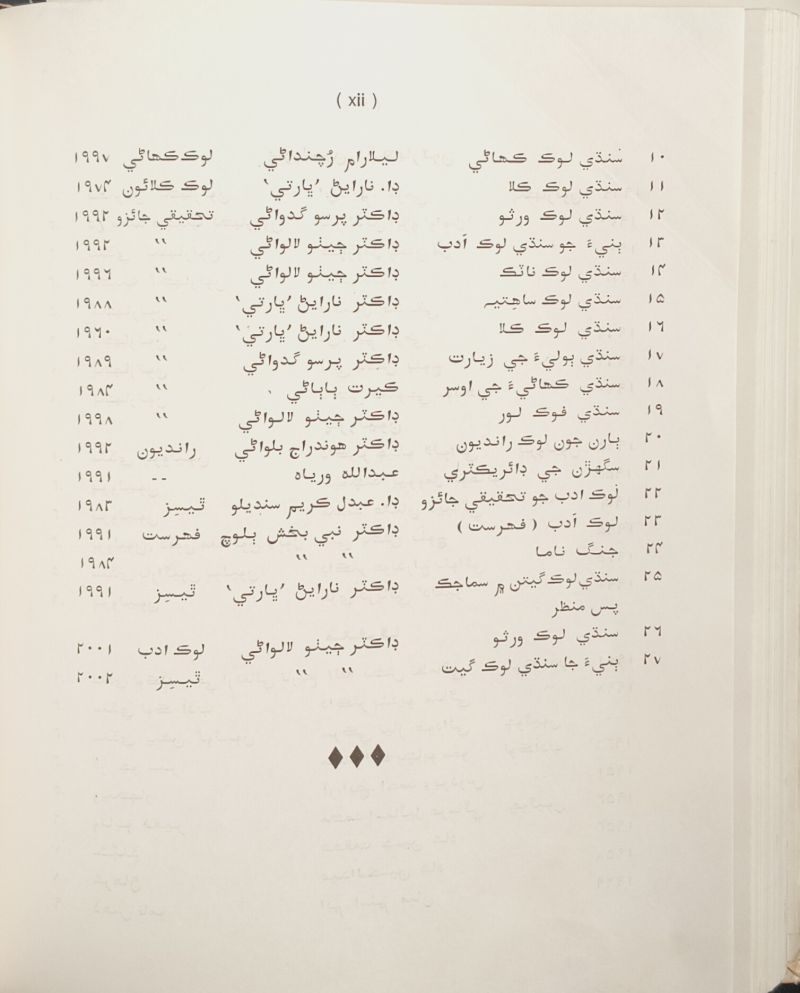 ( xii )
۱۰ سنڌي لوڪ ڪھاڻي ليلارام رُچنداڻي لوڪ ڪھاڻي ۱۹۹۷
۱۱ سنڌي لوڪ ڪلا ڊا. نارايڻ ’ڀارتي‘ لوڪ ڪلائون ۱۹۷۴
۱۲ سنڌي لوڪ ورثو ڊاڪٽر پرسو گدواڻي تحقيقي جائزو ۱۹۹۲
۱۳ ٻنيءَ جو سنڌي لوڪ اَدب ڊاڪٽر جيٺو لالواڻي " ۱۹۹۲
۱۴ سنڌي لوڪ ناٽڪ ڊاڪٽر جيٺو لالواڻي " ۱۹۹٦
۱۵ سنڌي لوڪ ساھتيہ ڊاڪٽر نارايڻ ’ڀارتي‘ " ۱۹۸۸
۱٦ سنڌي لوڪ ڪلا ڊاڪٽر نارايڻ ’ڀارتي‘ " ۱۹٦۰
۱۷ سنڌي ٻوليءَ جي زيارت ڊاڪٽر پرسو گدواڻي " ۱۹۸۹
۱۸ سنڌي ڪھاڻيءَ جي اوسر ڪيرت ٻاٻاڻي " ۱۹۸۴
۱۹ سنڌي فوڪ لور ڊاڪٽر جيٺو لالواڻي " ۱۹۹۸
۲۰ ٻارن جون لوڪ رانديون ڊاڪٽر ھوندراج بلواڻي رانديون ۱۹۹۲
۲۱ سگھڙن جي ڊائريڪٽري عبدالله ورياه -- ۱۹۹۱
۲۲ لوڪ ادب جو تحقيقي جائزو ڊا. عبدل ڪريم سنديلو ٿيسز ۱۹۸۳
۲۳ لوڪ اَدب ( فھرست ) ڊاڪٽر نبي بخش بلوچ فھرست ۱۹۹۱
۲۴ جنگ ناما " " ۱۹۸۴
۲۵ سنڌي لوڪ گيتن ۾ سماجڪ ڊاڪٽر نارايڻ ’ڀارتي‘ ٿيسز ۱۹۹۱
پس منظر
۲٦ سنڌي لوڪ ورثو ڊاڪٽر جيٺو لالواڻي لوڪ ادب ۲۰۰۱
۲۷ ٻنيءَ جا سنڌي لوڪ گيت " " ٿيسز ۲۰۰۲